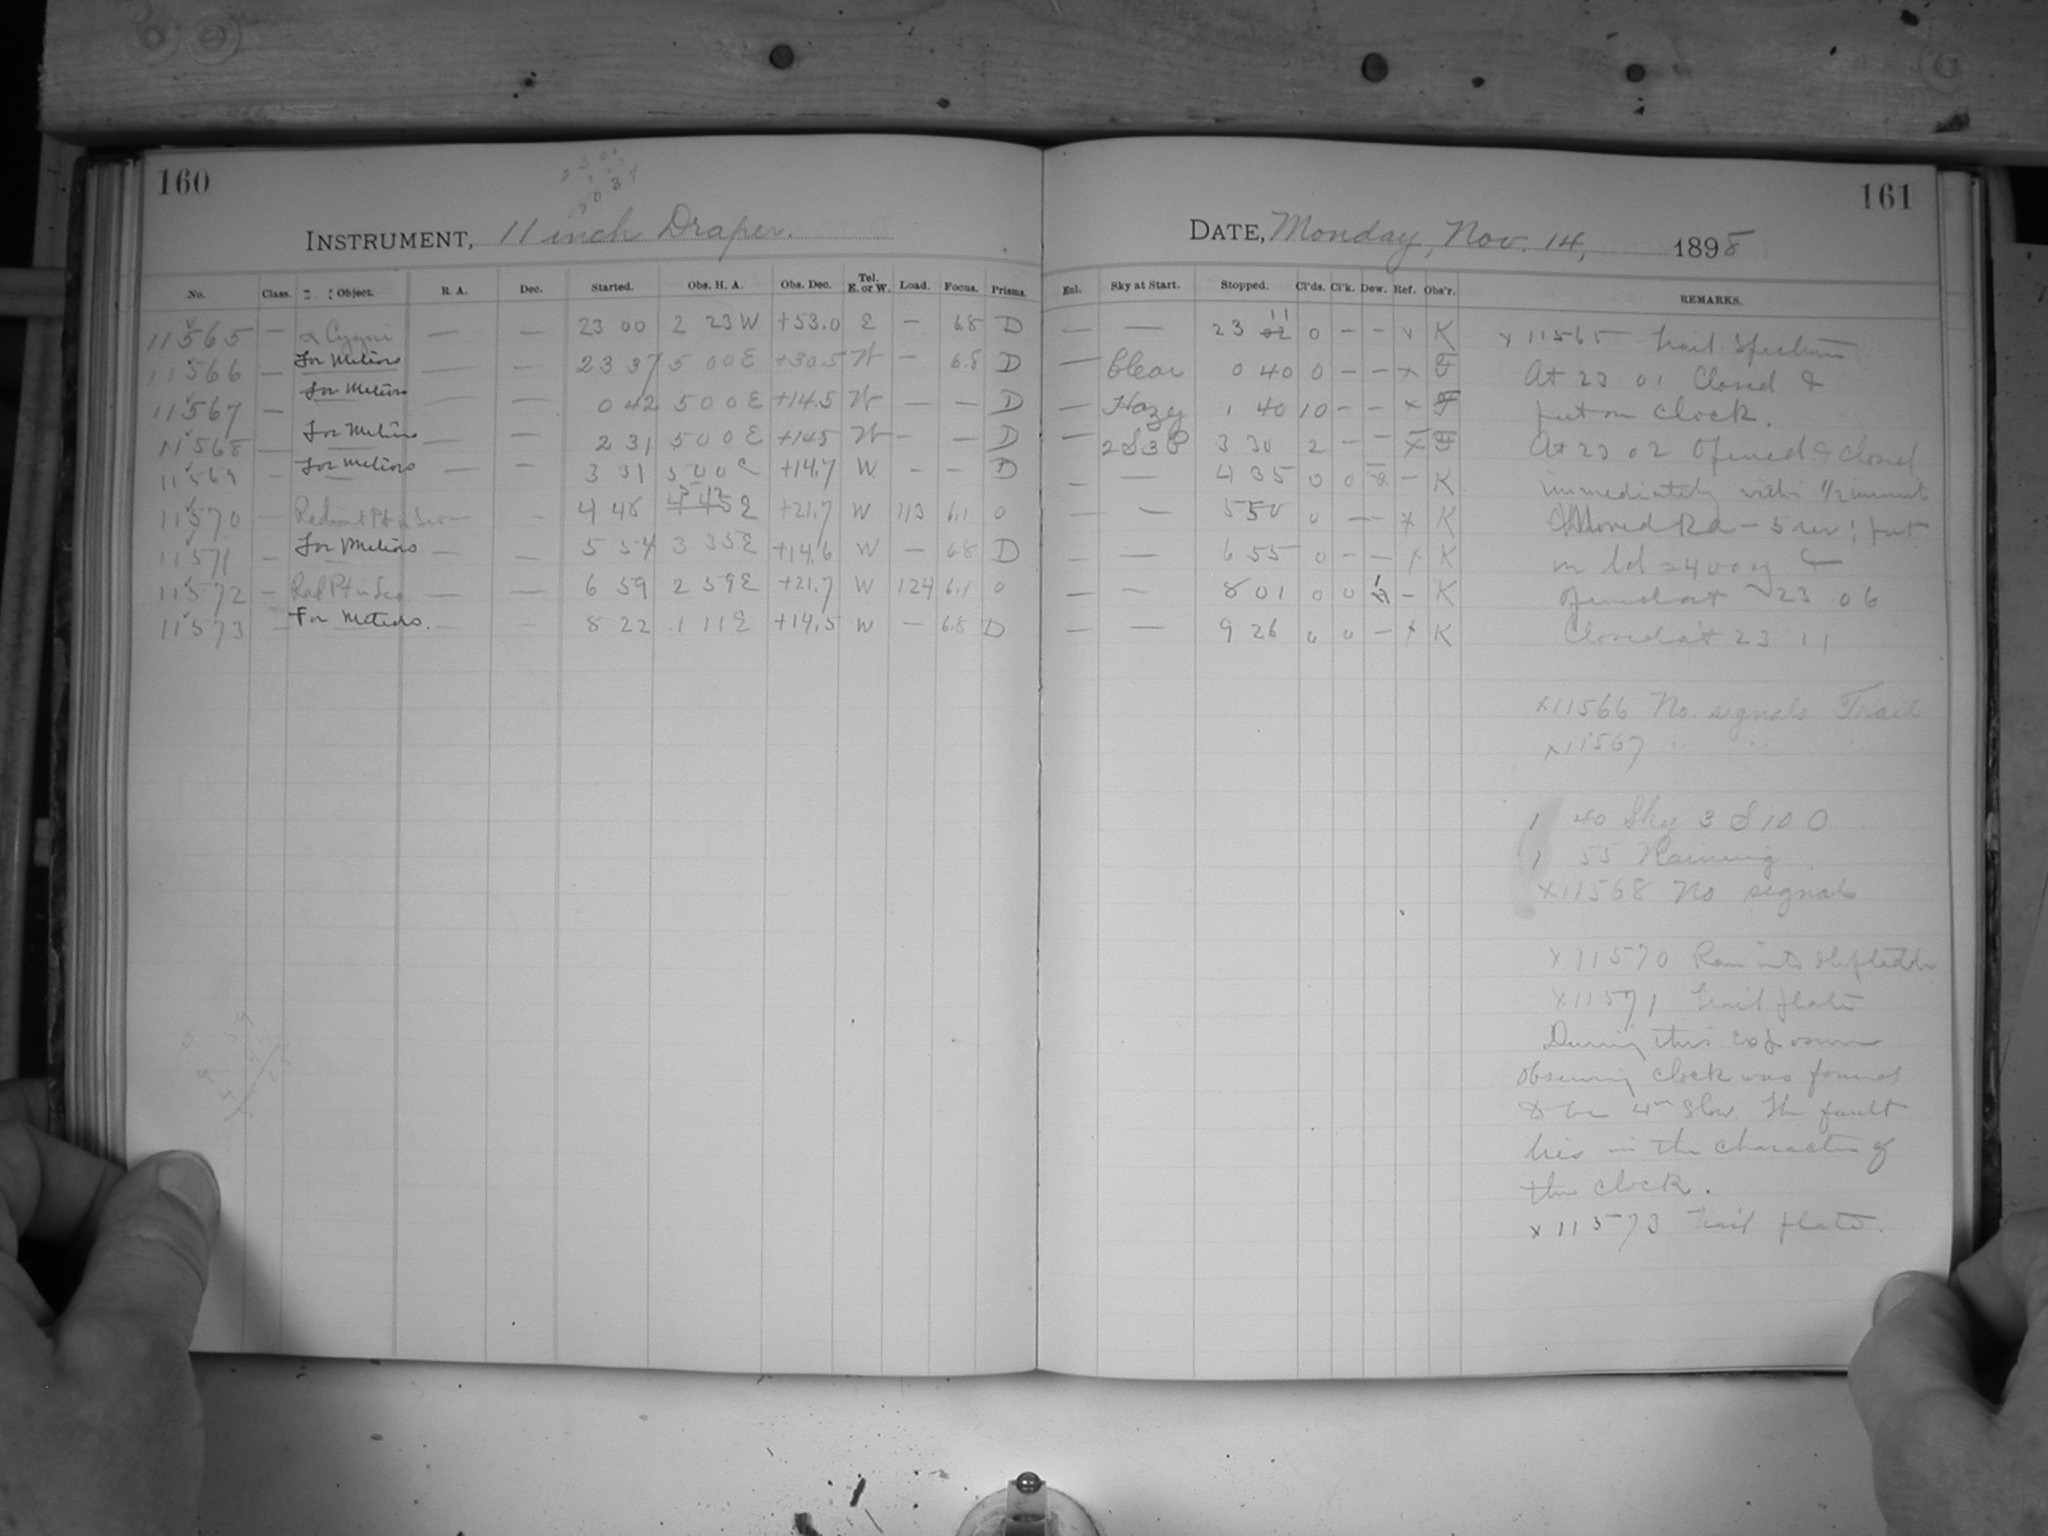 160
INSTRUMENT, 11 inch Draper.
No. Class. Object. R. A. Dec. Started. Obs. H. A. Obs. Dec. Tel. E. or W. Load. Focus. Prisms.
11565 — α Cygni — — 23 00 2 23 W +53.0 E — 6.8 D
11566 — For Meteors — — 23 37 5 00 E +30.5 W — 6.8 D
11567 — For Meteors — — 0 42 5 00 E +14.5 W — — D
11568 — For Meteors — — 2 31 5 00 E +14.5 W — — D
11569 — For Meteors — — 3 31 5 00 E +14.7 W — — D
11570 — Radiant Pt in Leo — — 4 48 +21.7 W 113 6.1 0
11571 — For Meteors — — 5 54 3 35 E +14.6 W — 6.8 D
11572 — Rad Pt in Leo — — 6 59 2 59 E +21.7 W 124 6.1 0
11573 — For Meteors. — — 8 22 1 11 E +14.5 W — 6.8 D
161
DATE, Monday, Nov. 14, 1898
Enl. Sky at Start. Stopped. Cl'ds. Cl'k. Dew. Ref. Obs'r. REMARKS.
— — 23 11 0 — — x K
— Clear 0 40 0 — — x F
— Hazy 1 40 10 — — x F
— 2S3P 3 30 2 — — x F
— — 4 35 0 0 — K
— — 5 50 0 — x K
— — 6 55 0 — — x K
— — 8 01 0 0 — K
— — 9 26 0 0 — x K
x 11565 Trail Spectrum
At 23 01 Closed &
put on clock.
At 23 02 Opened & closed
immediately within 1/2 minute
Moved Rd – 5 rev; put
in ld = 400 g &
opened at 23 06
Closed at 23 11
x11566 No. signals Trail
x11567 " " "
1 40 Sky 3 S 10 0
1 55 Raining
x11568 No signals
x 11570 Ran into stepladder
x11571 Trail plate
During this exposure
observing clock was found
to be 4m slow. The fault
lies in the character of
the clock.
x 11573 Trail plate.